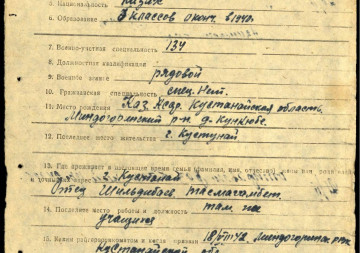 5. Национальность казах
6. Образование 8 классов оконч. в 1940г.
7. Военно-учетная специальность 134
8. Должностная квалификация
9. Воинское звание рядовой
10. Гражданская специальность спец. нет.
11. Место рождения Каз. ССР. Кустанайская область,
р-н. д.
12. Последнее место жительства г. Кустанай
13. Где проживает в настоящее время семья
г. Кустанай
Отец Шильдибаев Тасмагамбет.
14. Последнее место работы и должность там же
учащийся
15. Каким райгорвоенкоматом и когда призван 18/VIII 42.
Кустанайской обл.